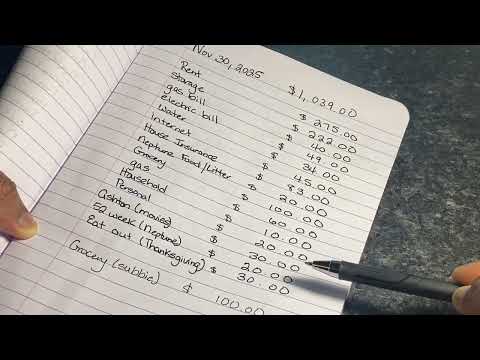 Nov 30, 2025 $1,039.00
Rent $ 275.00
Storage $ 222.00
gas bill $ 40.00
electric bill $ 49.00
Water $ 34.00
Internet $ 45.00
House Insurance $ 83.00
Neptune Food/Litter $ 20.00
Grocery $ 100.00
gas $ 60.00
Household $ 10.00
Personal $ 20.00
Ashton (movies) $ 30.00
52 week (Neptune) $ 20.00
Eat out (Thanksgiving) $ 30.00
Grocery (subbie) $ 100.00